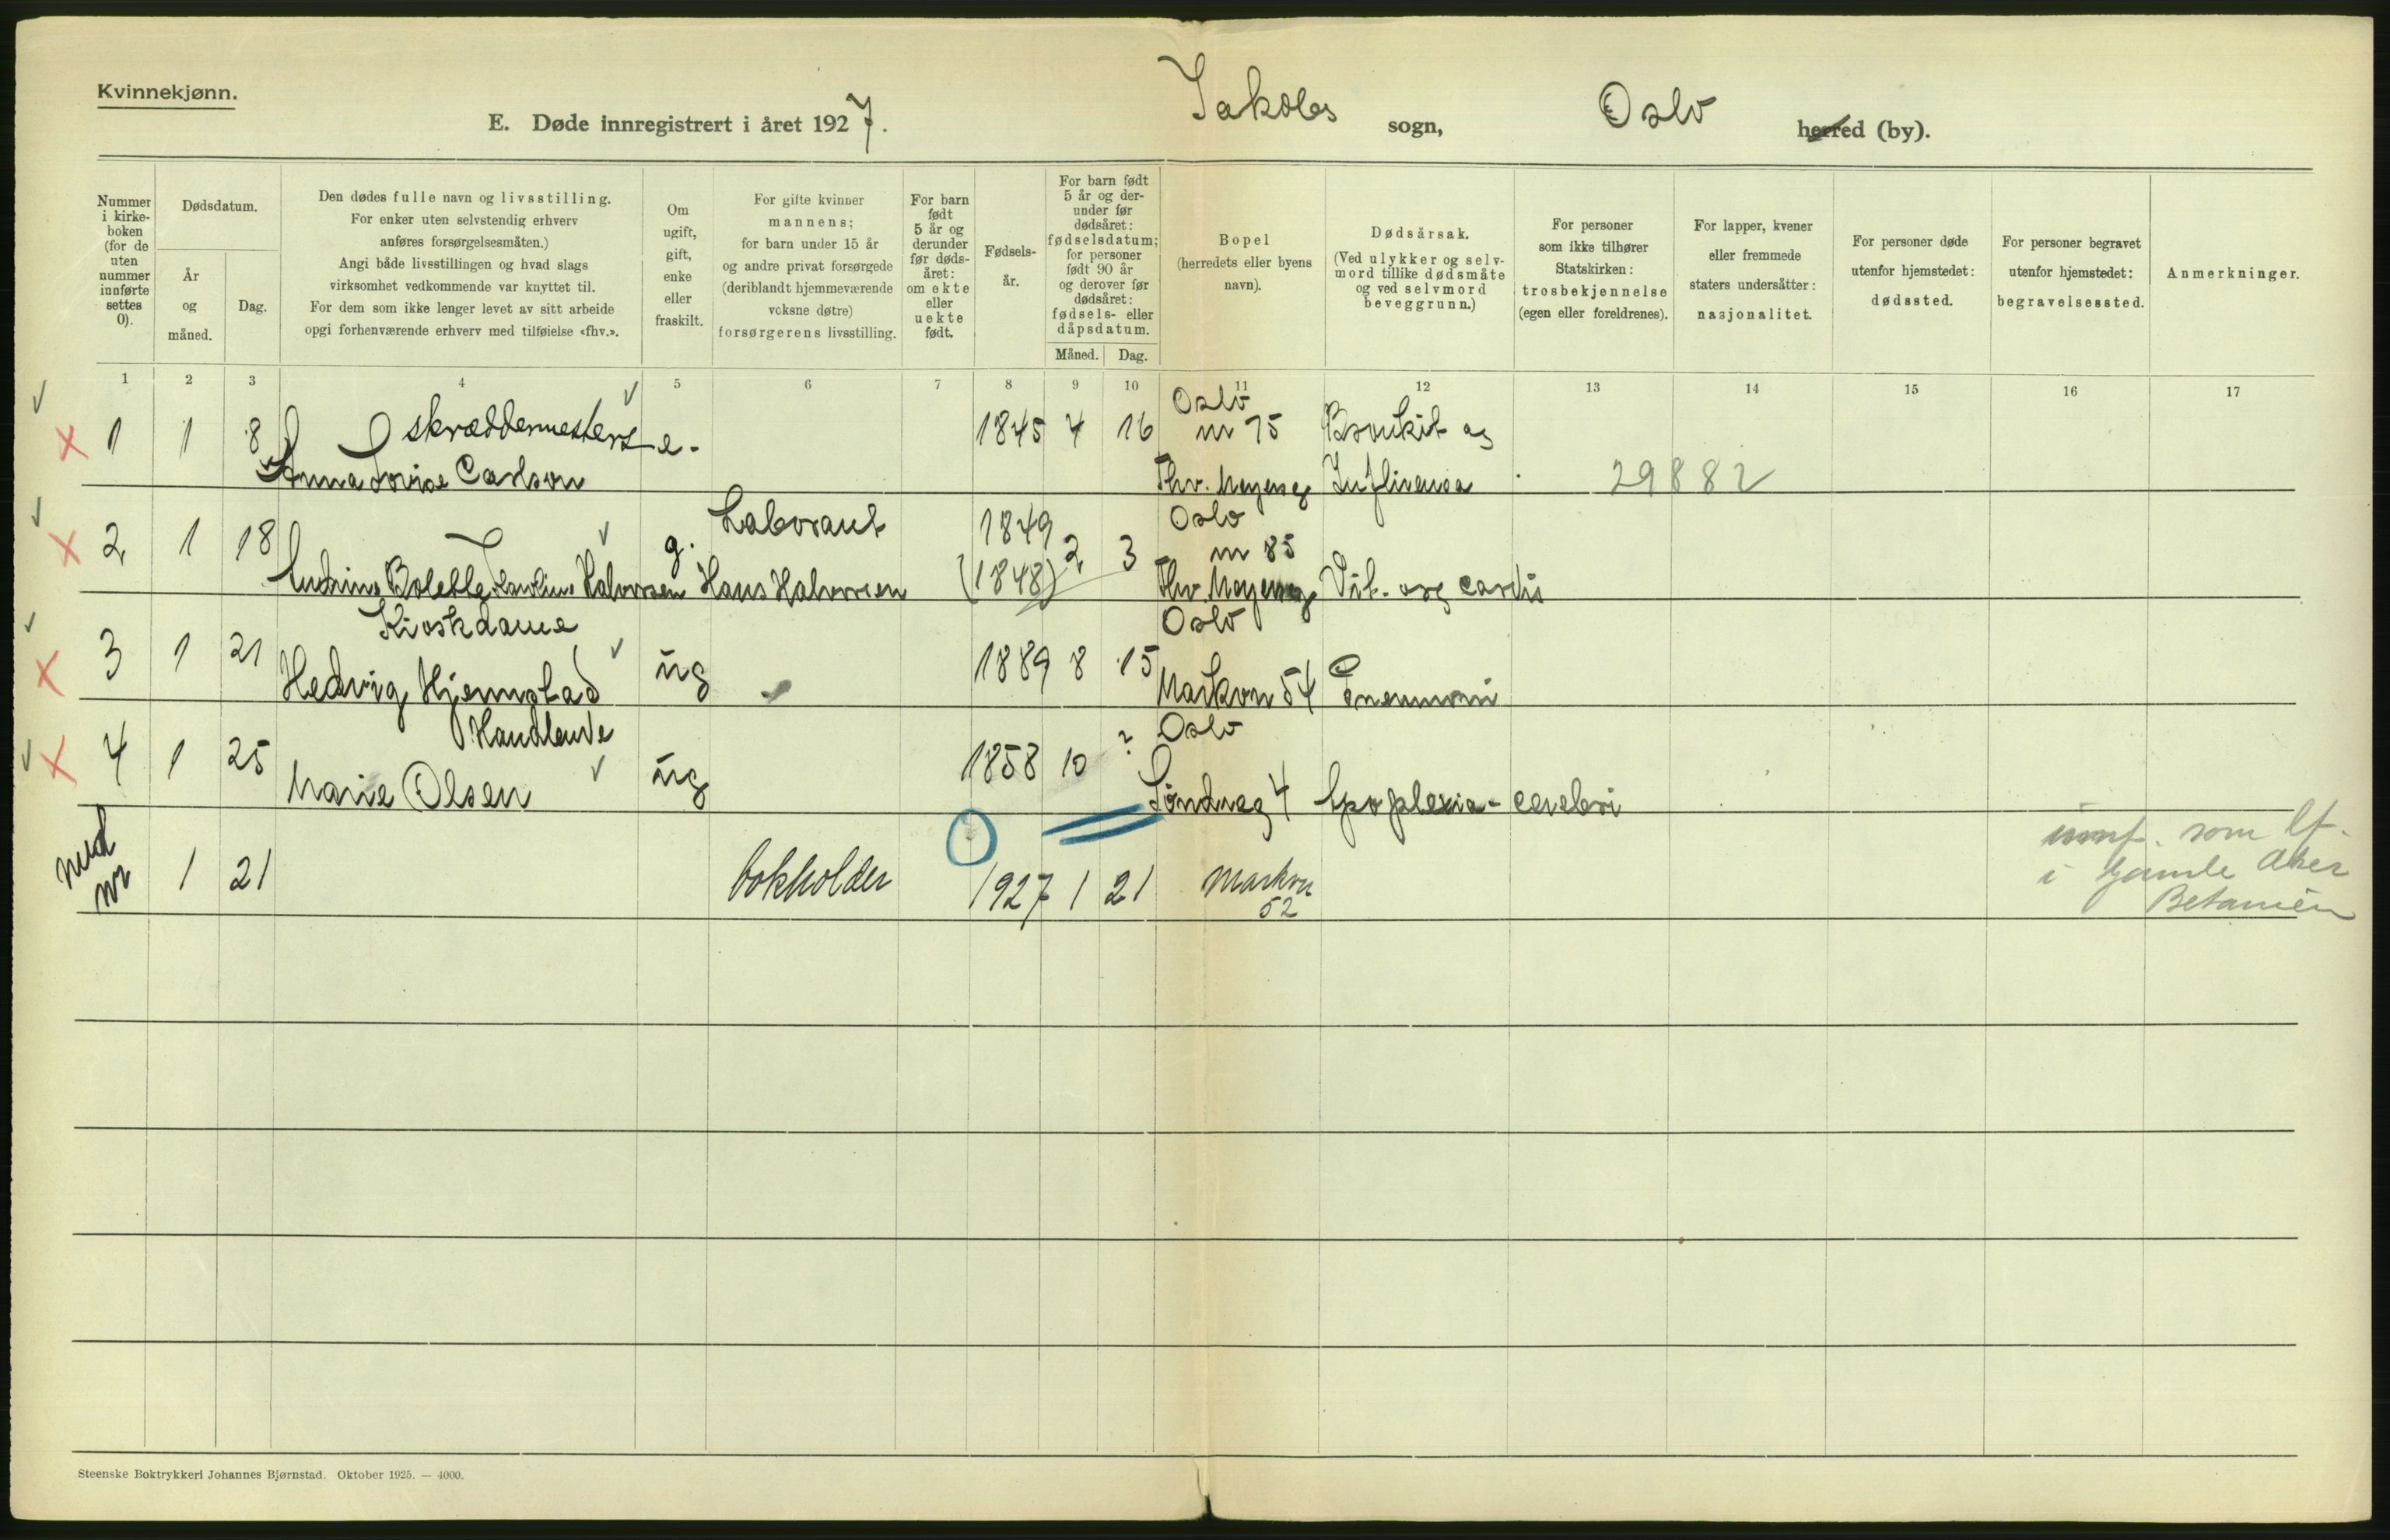 Kvinnekjønn.
E. Døde innregistrert i året 1927. Jakobs sogn, Oslo herred (by).
Nummer i kirke-boken (for de uten nummer innførte settes 0).
Dødsdatum.
År og måned.
Dag.
Den dødes fulle navn og livsstilling.
For enker uten selvstendig erhverv
anføres forsørgelsesmåten.)
Angi både livsstillingen og hvad slags
virksomhet vedkommende var knyttet til.
For dem som ikke lenger levet av sitt arbeide
opgi forhenværende erhverv med tilføielse «fhv.».
Om ugift, gift, enke eller fraskilt.
For gifte kvinner
mannens;
for barn under 15 år
og andre privat forsørgede
(deriblandt hjemmeværende
voksne døtre)
forsørgerens livsstilling.
For barn født 5 år og derunder før døds-året: om ekte eller uekte født.
Fødsels-år.
For barn født
5 år og der-
under før
dødsåret:
fødselsdatum;
for personer
født 90 år
og derover før
dødsåret:
fødsels- eller
dåpsdatum.
Måned. Dag.
Bopel
(herredets eller byens
navn).
Dødsårsak.
(Ved ulykker og selv-
mord tillike dødsmåte
og ved selvmord
beveggrunn.)
For personer
som ikke tilhører
Statskirken:
trosbekjennelse
(egen eller foreldrenes).
For lapper, kvener
eller fremmede
staters undersåtter:
nasjonalitet.
For personer døde
utenfor hjemstedet:
dødssted.
For personer begravet
utenfor hjemstedet:
begravelsessted.
Anmerkninger.
1 2 3 4 5 6 7 8 9 10 11 12 13 14 15 16 17
skræddermesters Oslo
1 1 8 e. 1845 4 16 nr 75 Bronkit og
Anna Lovise Carlson Thv. Meyersg Influensa 29882
Laborant 1849 Oslo
2 1 18 g. 2 3 nr 85
Bolette Karoline Halvorsen Hans Halvorsen (1848) Thv. Meyersg Vit. org cordis
Kioskdame Oslo
3 1 21 ug 1889 8 15
Hedvig Hjemstad Markvn 54 Pneumoni
Handlende ? Oslo
4 1 25 ug 1858 10
Marie Olsen 4 Apoplexia - cerebri
innf. som lf.
i Gamle Aker
Betanien
nr 1 21 bokholder 1927 1 21 Markvn
52
Steenske Boktrykkeri Johannes Bjørnstad. Oktober 1925. — 4000.